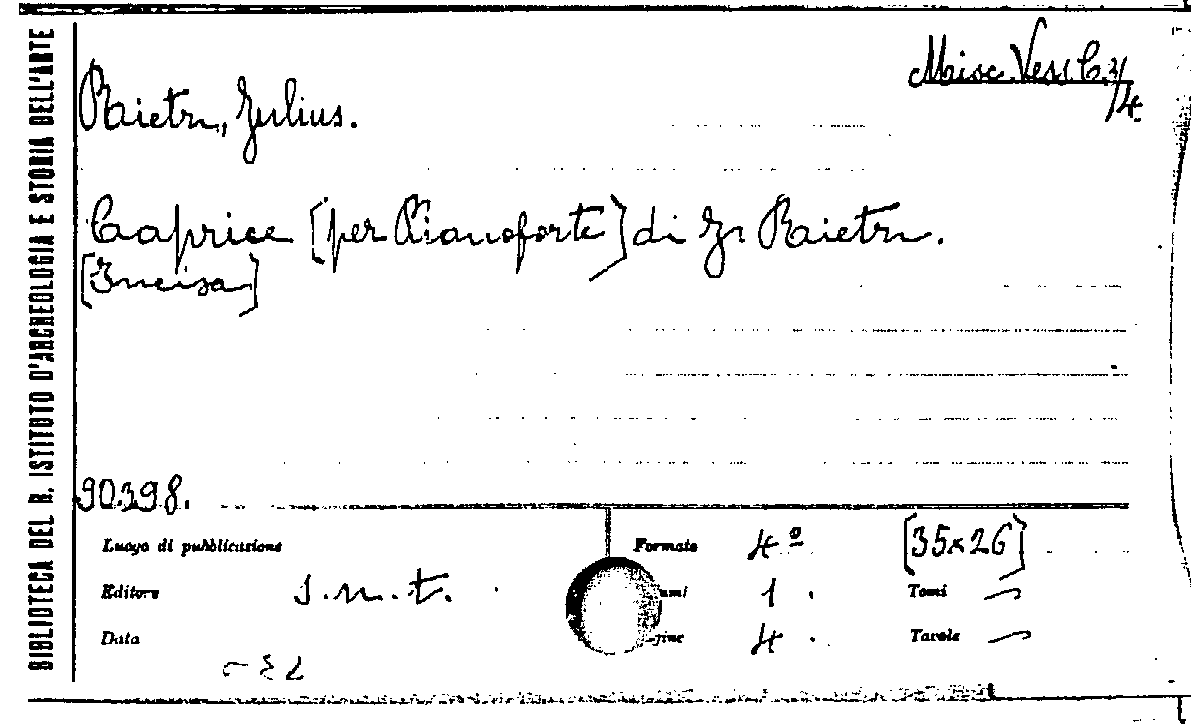 BIBLIOTECA DEL R. ISTITUTO D'ARCHEOLOGIA E STORIA DELL'ARTE
Misc. Vess. C. 3/4.
Rietz, Julius.
Caprice [per Pianoforte] di Rietz.
[Incisa]
90398.
Luogo di pubblicazione
Formato 4º [35×26]
Editore s.n.t.
umi 1. Tomi
Data
gine 4. Tavole